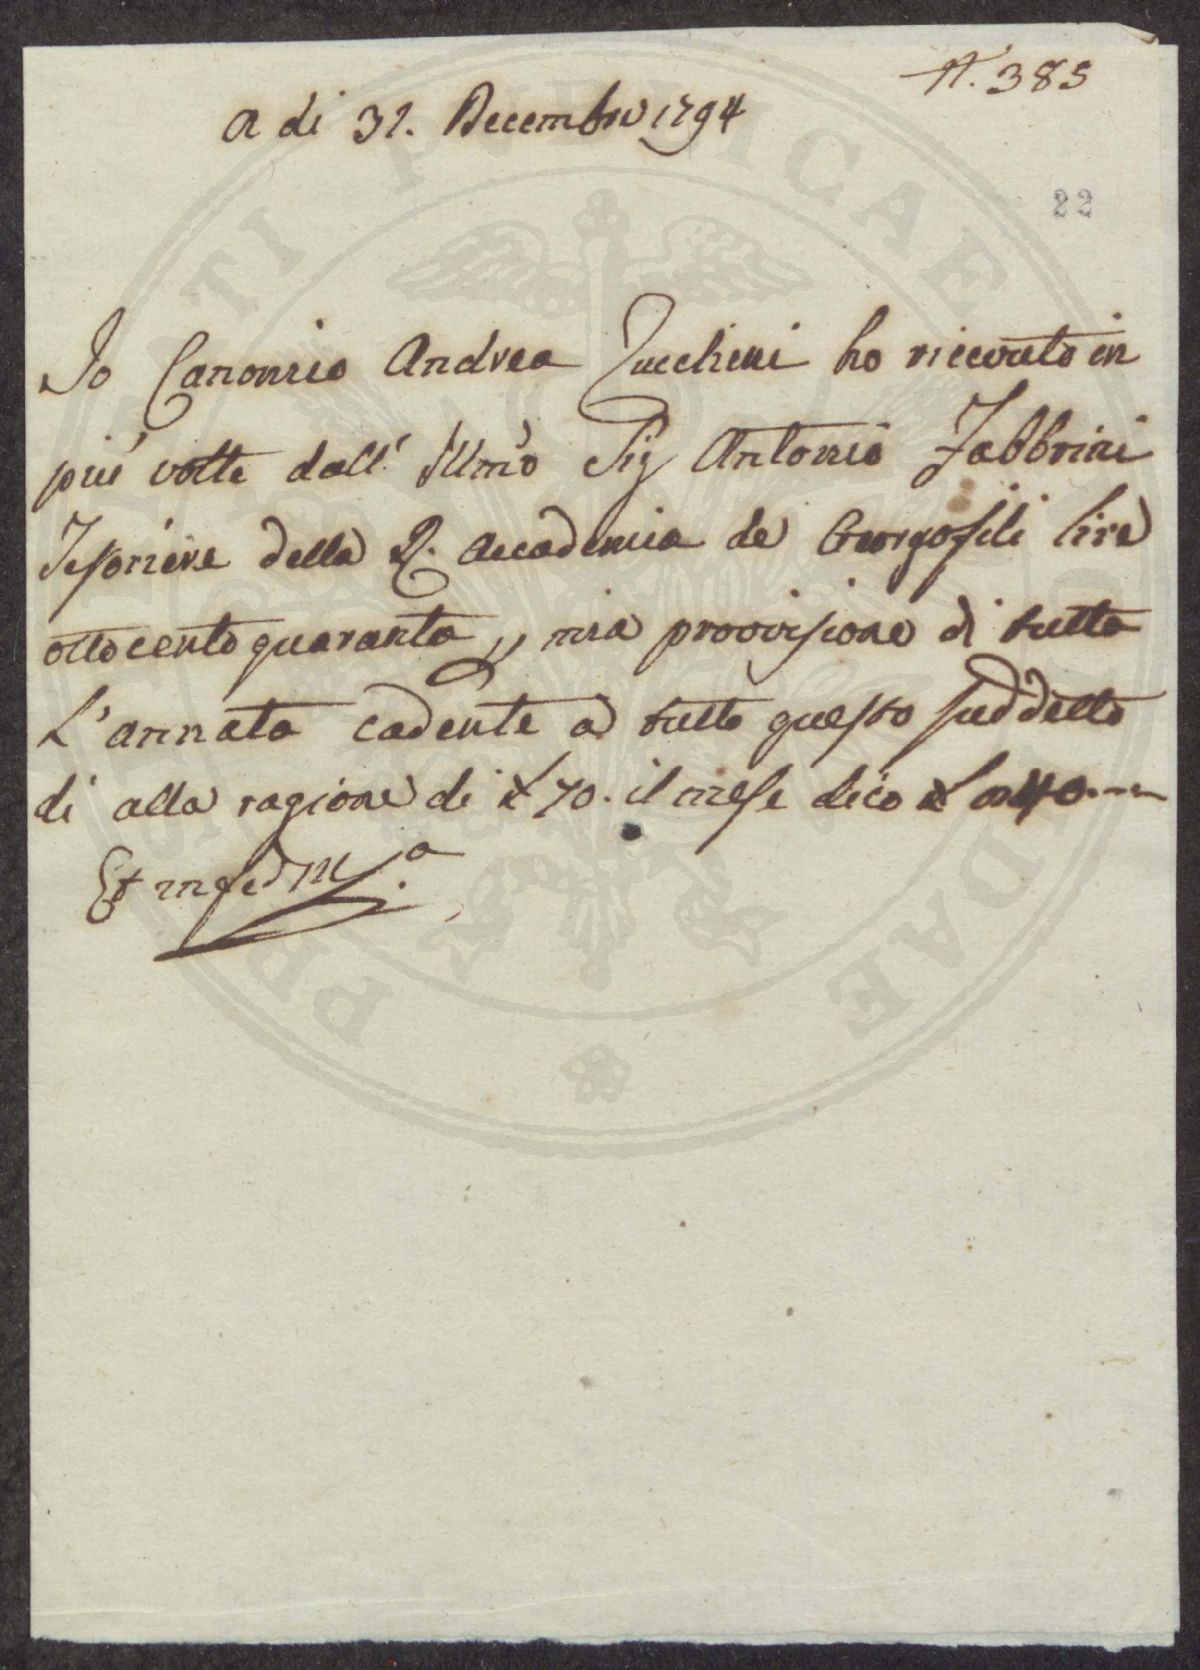 N. 385
A di 31. Decembre 1794
22
Io Canonico Andrea Zucchini ho ricevuto in
piu' volte dall'. Illmo Sig Antonio Fabbrini
Tesoriere della R. Accademia de Georgofili lire
ottocentoquaranta,, mia provvisione di tutta
L'annata cadente a tutto questo suddetto
di alla ragione di £ 70. il mese dico £ 840.---